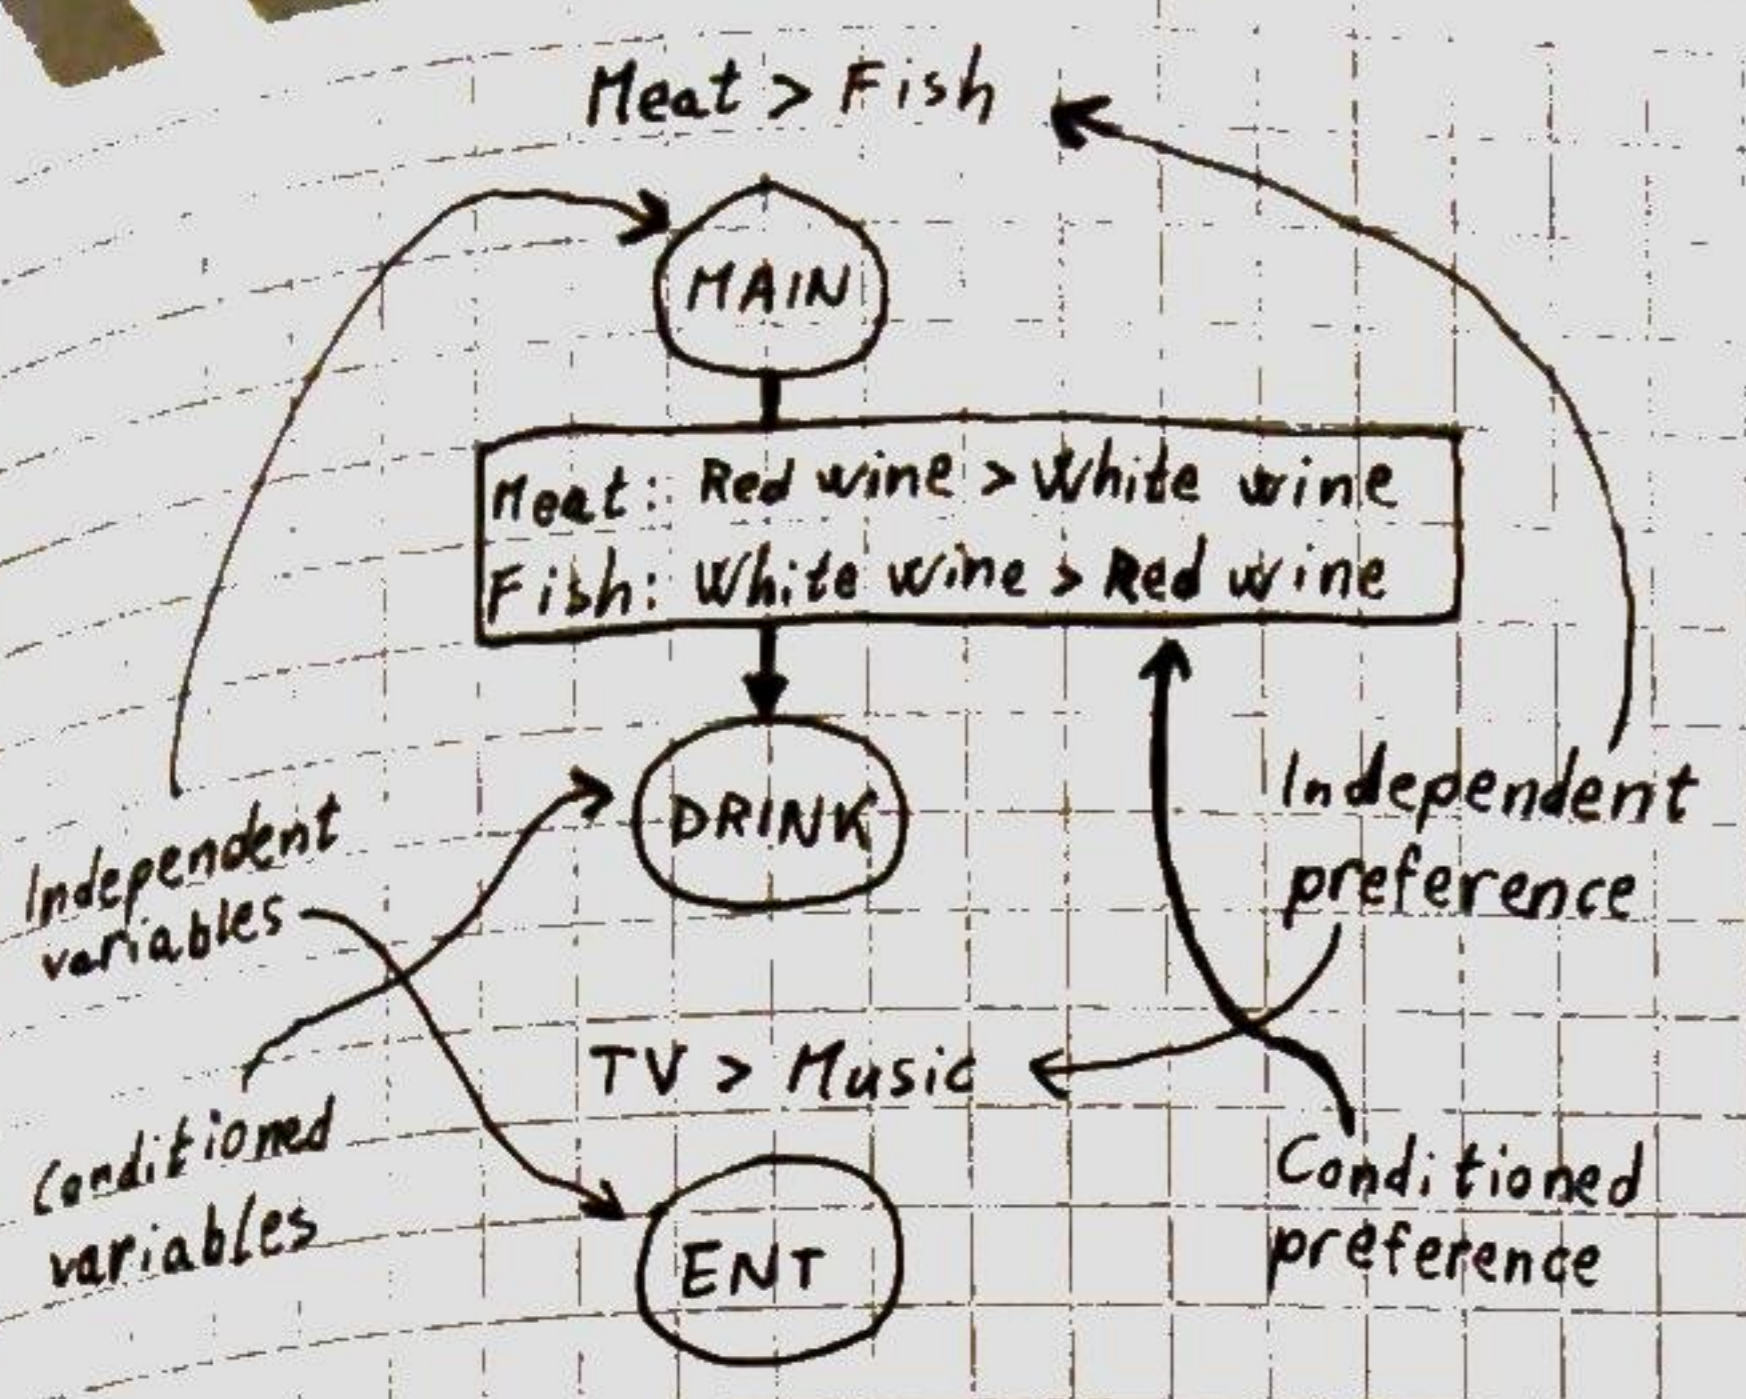 Meat > Fish
MAIN
Meat: Red wine > White wine
Fish: White wine > Red wine
DRINK
Independent
variables
Independent
preference
TV > Music
Conditioned
variables
Conditioned
preference
ENT